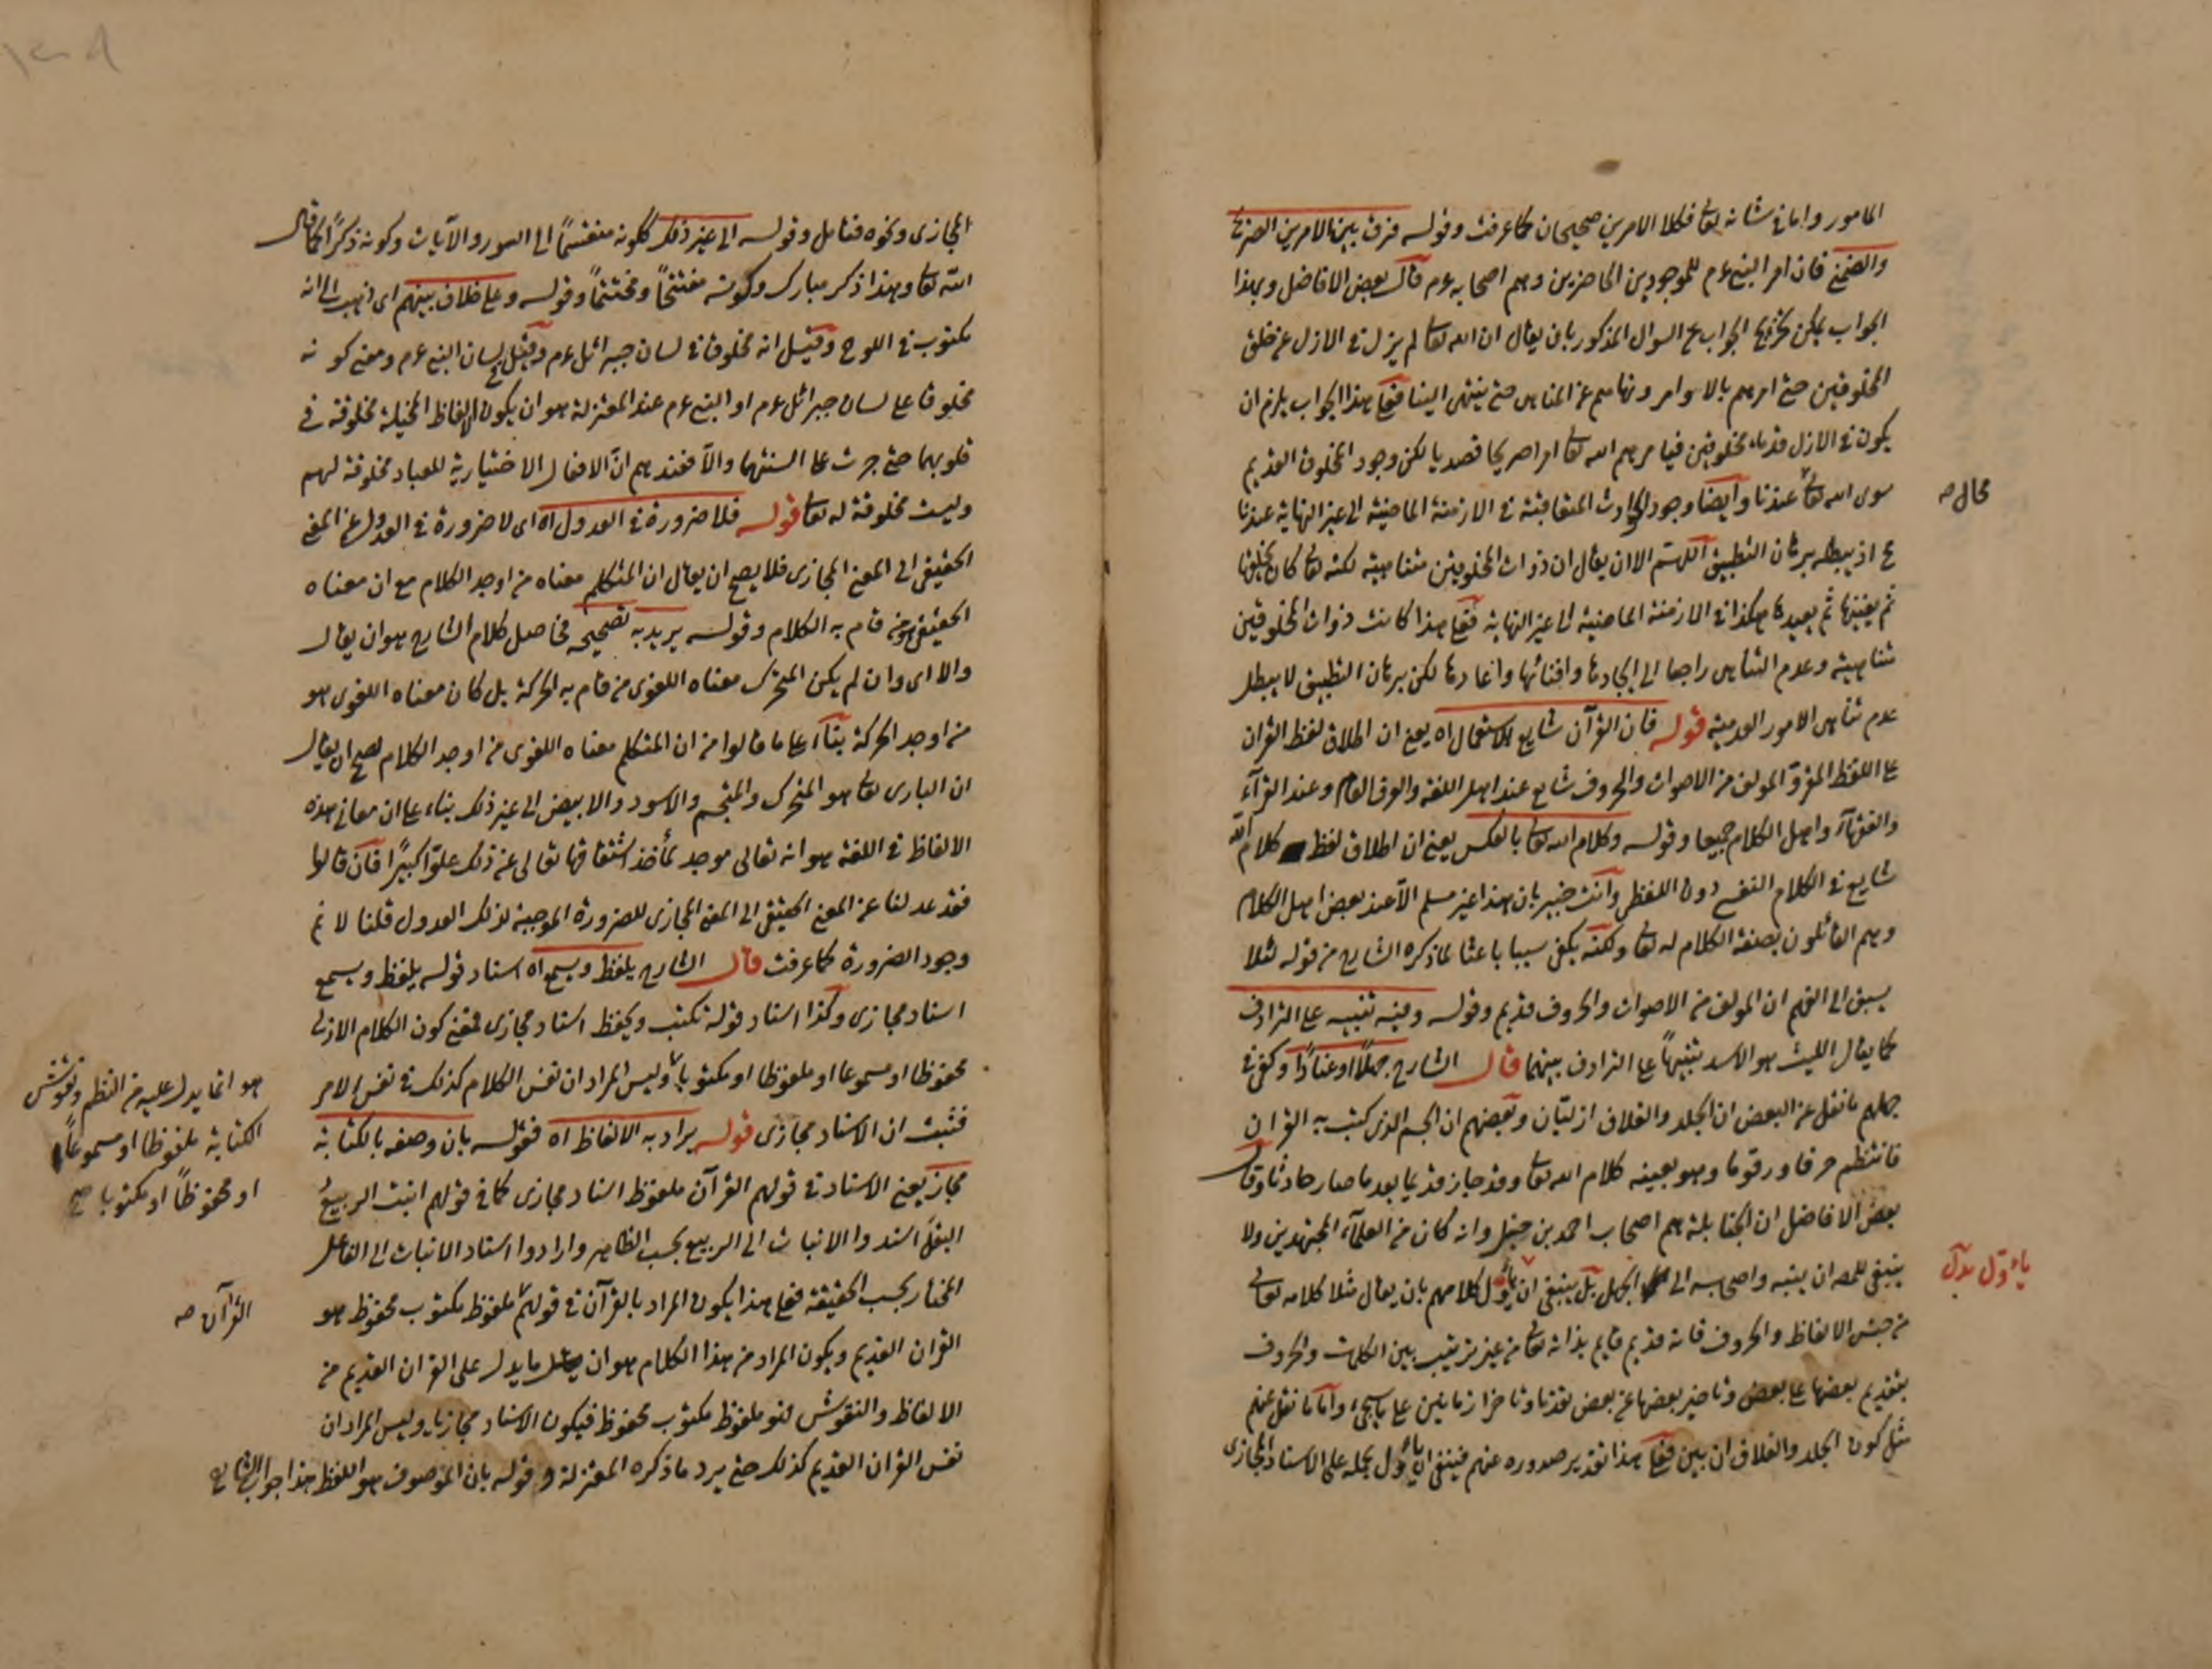 المامور واما في شانه تعالى فكلا الامرين صحيحان كما عرفت وقوله فرق بين الامرين الصريح
والضمني فان امر النبي عم للموجودين الحاضرين وهم اصحابه عم قال بعض الافاضل وبهذا
الجواب يمكن تخريج الجواب عن السوال المذكور بان يقال ان الله تعالى لم يزل في الازل عن خلق
المخلوقين حتى امرهم بالاوامر ونهاهم عن المناهي حتى ينتهى الينا فعلى هذا الجواب يلزم ان
يكون في الازل قدماء مخلوقين فيامرهم الله تعالى امرا صريحا قصديا لكن وجود المخلوق القديم
سوى الله تعالى عندنا وايضا وجود الحوادث المتعاقبة في الازمنة الماضية الى غير النهاية عندنا
محال صح
مح اذ يبطله برهان التطبيق اللهم الا ان يقال ان ذوات المخلوقين متناهية لكنه تعالى كان يخلقها
ثم يفنيها ثم يعيدها هكذا في الازمنة الماضية الى غير النهاية فعلى هذا كانت ذوات المخلوقين
متناهية وعدم التناهي راجعا الى ايجادها وافنائها واعادتها لكن برهان التطبيق لا يبطل
عدم تناهي الامور العدمية قوله فان القرآن شايع الاستعمال اه يعني ان اطلاق لفظ القران
على اللفظ المقروّ المولف من الاصوات والحروف شايع عند اهل اللغة والعرف العام وعند القرآء
والفقهآء واهل الكلام جميعا وقوله وكلام الله تعالى بالعكس يعني ان اطلاق لفظ كلام الله
شايع في الكلام النفسي دون اللفظى وانت خبير بان هذا غير مسلم الا عند بعض اهل الكلام
وهم القائلون بصفة الكلام له تعالى ولكنه يكفي سببا باعثا لما ذكره الشارح من قوله لئلا
يسبق الى الفهم ان المولف من الاصوات والحروف قديم وقوله وفيه تنبيه على الترادف
كما يقال الليث هو الاسد تنبيهاً على الترادف بينهما قال الشارح جهلاً او عناداً وكفى في
جهلهم ما نقل عن البعض ان الجلد والغلاف ازليّان وبعضهم ان الجسم الذى كتب به القران
فانتظم حرفا ورقوما وهو بعينه كلام الله تعالى وقد صار قديما بعد ما صار حادثا وقال
بعض الافاضل ان الحنابلة هم اصحاب احمد بن حنبل وانه كان من العلمآء المجتهدين ولا
ينبغي للمص ان ينسبه واصحابه الى الجهل بل ينبغي ان يأوّل كلامهم بان يقال مثلا كلامه تعالى
يأوّل بدل
من جنس الالفاظ والحروف فانه قديم قايم بذاته تعالى من غير ترتيب بين الكلمات والحروف
بتقديم بعضها على بعض وتاخير بعضها عن بعض تقدما وتاخرا زمانيين على ما سيجئ واما ما نقل عنهم
مثل كون الجلد والغلاف ازليين فعلى هذا تقدير صدوره عنهم فينبغي ان يأوّل بحمله على الاسناد المجازى
المجازى ونحوه فتامل وقوله الى غير ذلك ككونه منقسماً الى السور والآيات وكونه ذكراً كما قال
الله تعالى وهذا ذكر مبارك وكونه مفتتحاً ومختتماً وقوله وعلى خلاف بينهم اى ذهب الى انه
مكتوب في اللوح وقيل انه مخلوق في لسان جبرائل عم وقيل لسان النبي عم ومعنى كونه
مخلوقا على لسان جبرائل عم او النبي عم عند المعتزلة هو ان يكون الالفاظ المخيلة مخلوقة في
قلوبهما حتى جرت على السنتهما والا فعندهم انّ الافعال الاختيارية للعباد مخلوقة لهم
وليست مخلوقة له تعالى قوله فلا ضرورة في العدول اه اى لا ضرورة في العدول عن المعنى
الحقيقي الى المعنى المجازى فلا يصح ان يقال ان المتكلم معناه من اوجد الكلام مع ان معناه
الحقيقي هو من قام به الكلام وقوله يريد به تصحيح فحاصل كلام الشارح هو ان يقال
والا اى وان لم يكن المتحرك معناه اللغوى من قام به الحركة بل كان معناه اللغوى هو
من اوجد الحركة بنآء على ما قالوا من ان المتكلم معناه اللغوى من اوجد الكلام لصح ان يقال
ان البارى تعالى هو المتحرك والمتجسم والاسود والابيض الى غير ذلك بناء على ان معاني هذه
الالفاظ في اللغة هو انه تعالى موجد لمأخذ اشتقاقها تعالى عن ذلك علوّا كبيرًا فان قالوا
فقد عدلنا عن المعنى الحقيقي الى المعنى المجازى للضرورة الموجبة لذلك العدول قلنا لا نم
وجود الضرورة كما عرفت قال الشارح يلفظ ويسمع اه اسناد قوله يلفظ ويسمع
اسناد مجازى وكذا اسناد قوله نكتب ويحفظ اسناد مجازى فمعنى كون الكلام الازلى
محفوظا او مسموعا او ملفوظا او مكتوبا وليس المراد ان نفس الكلام كذلك في نفس الامر
هو انما يدل عليه من النظم ونقوش
الكتابة ملفوظا او مسموعاً
او محفوظاً او مكتوبا صح
فثبت ان الاسناد مجازى قوله يراد به الالفاظ اه فقوله بان وصفه بالكتابة
مجاز يعني الاسناد في قولهم القرآن ملفوظ اسناد مجازى كما في قولهم انبت الربيعُ
البقلَ اسندوا الانبات الى الربيع بحسب الظاهر وارادوا اسناد الانبات الى الفاعل
المختار بحسب الحقيقة فعلى هذا يكون المراد بالقرآن في قولهم ملفوظ مكتوب محفوظ هو
القرآن صح
القران القديم ويكون المراد من هذا الكلام هو ان ما يدل على القران القديم من
الالفاظ والنقوش فهو ملفوظ مكتوب محفوظ فيكون الاسناد مجازيا وليس المراد ان
نفس القران القديم كذلك حتى يرد ما ذكره المعتزلة وقوله بان الموصوف هو اللفظ هذا جواب الشارح